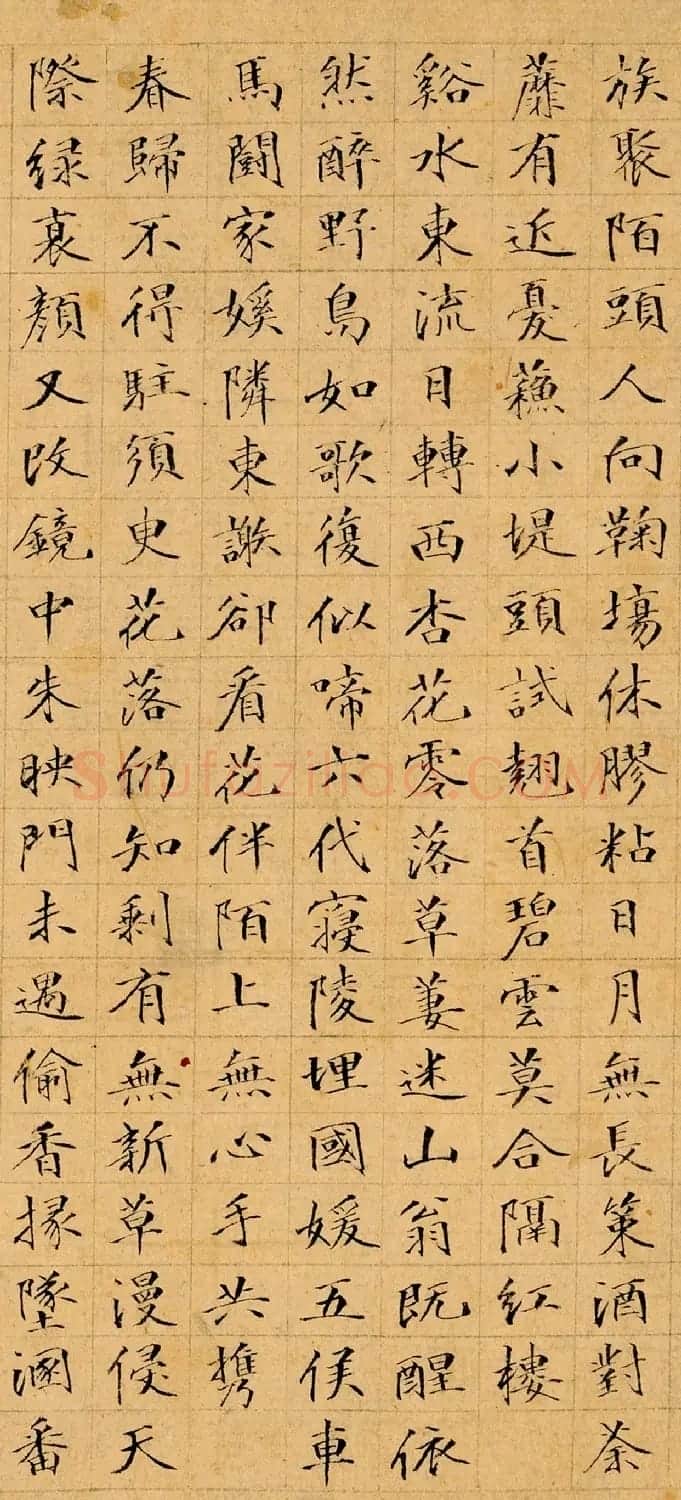 族聚陌頭人向鞠場休膠粘日月無長策酒對荼
蘼有近憂蘓小堤頭試翹首碧雲莫合隔紅樓
谿水東流日轉西杏花零落草萋迷山翁既醒依
然醉野鳥如歌復似啼六代寢陵埋國媛五侯車
馬鬪家㜎隣東謝卻看花伴陌上無心手共携
春歸不得駐須臾花落仍知剩有無新草漫侵天
際緑衰顔又改鏡中朱映門未遇偷香掾墜溷番